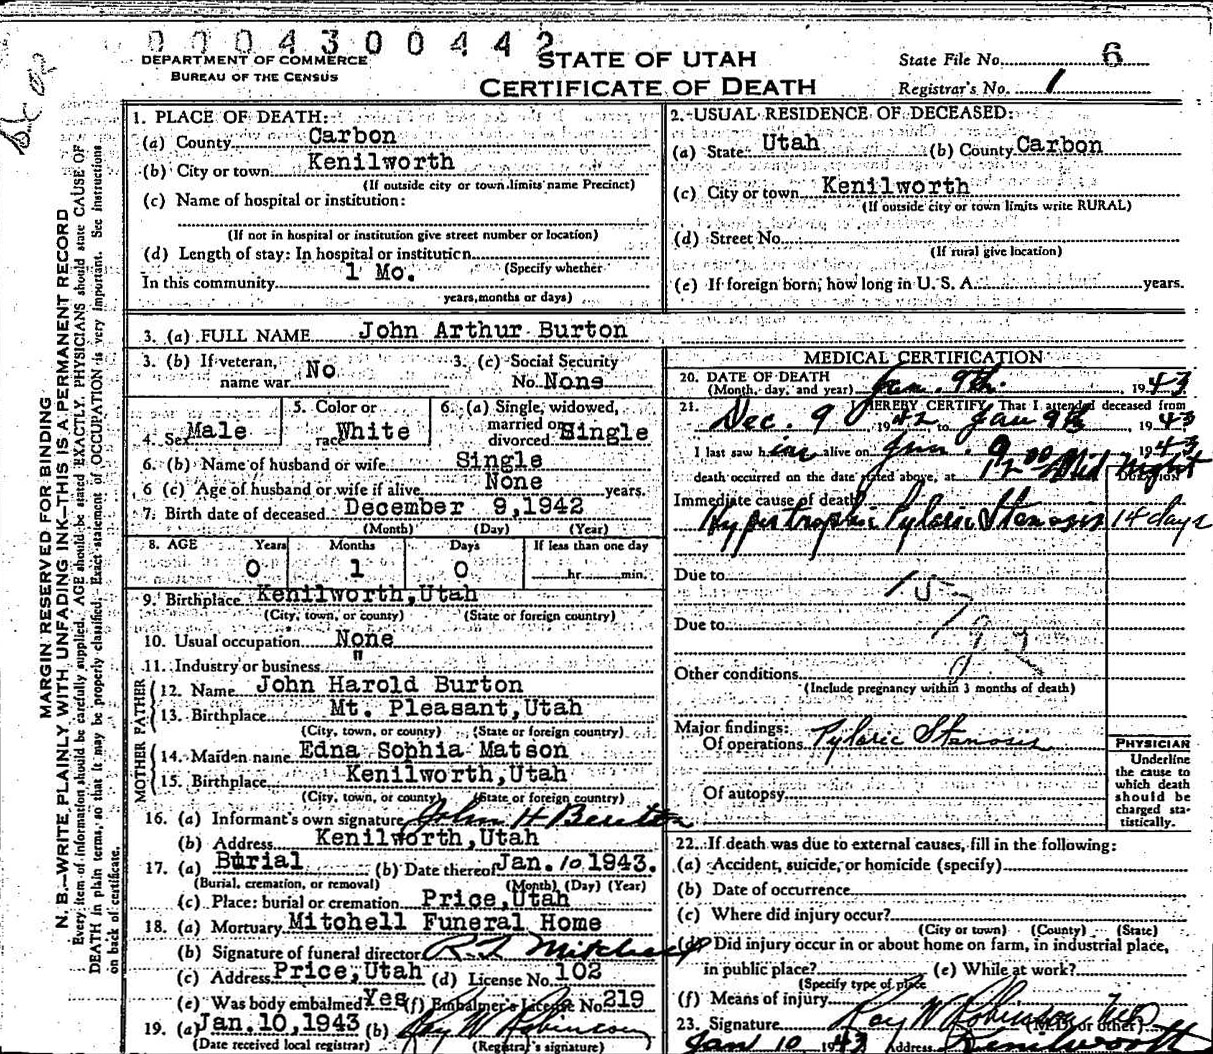 0 0 0 4 3 0 0 4 4 2
DEPARTMENT OF COMMERCE
BUREAU OF THE CENSUS
STATE OF UTAH
CERTIFICATE OF DEATH
State File No. 6
Registrar's No. 1
MARGIN RESERVED FOR BINDING
N. B.—WRITE PLAINLY, WITH UNFADING INK—THIS IS A PERMANENT RECORD
Every item of information should be carefully supplied. AGE should be stated EXACTLY. PHYSICIANS should state CAUSE OF
DEATH in plain terms, so that it may be properly classified. Exact statement of OCCUPATION is very important. See instructions
on back of certificate.
1. PLACE OF DEATH:
(a) County Carbon
(b) City or town Kenilworth
(If outside city or town limits name Precinct)
(c) Name of hospital or institution:
(If not in hospital or institution give street number or location)
(d) Length of stay: In hospital or institution
(Specify whether
In this community 1 Mo.
years, months or days)
2. USUAL RESIDENCE OF DECEASED:
(a) State Utah (b) County Carbon
(c) City or town Kenilworth
(If outside city or town limits write RURAL)
(d) Street No.
(If rural give location)
(e) If foreign born, how long in U. S. A. years.
3. (a) FULL NAME John Arthur Burton
3. (b) If veteran, name war No
3. (c) Social Security No. None
4. Sex Male
5. Color or race White
6. (a) Single, widowed, married or divorced Single
6. (b) Name of husband or wife Single
6 (c) Age of husband or wife if alive None years.
7. Birth date of deceased December 9,1942
(Month) (Day) (Year)
8. AGE Years Months Days If less than one day
0 1 0 hr. min.
9. Birthplace Kenilworth,Utah
(City, town, or county) (State or foreign country)
10. Usual occupation None
11. Industry or business "
FATHER
12. Name John Harold Burton
13. Birthplace Mt. Pleasant,Utah
(City, town, or county) (State or foreign country)
MOTHER
14. Maiden name Edna Sophia Matson
15. Birthplace Kenilworth,Utah
(City, town, or county) (State or foreign country)
16. (a) Informant's own signature John H Burton
(b) Address Kenilworth,Utah
17. (a) Burial (b) Date thereof Jan. 10 1943.
(Burial, cremation, or removal) (Month) (Day) (Year)
(c) Place: burial or cremation Price,Utah
18. (a) Mortuary Mitchell Funeral Home
(b) Signature of funeral director Mitchell
(c) Address Price,Utah (d) License No. 102
(e) Was body embalmed Yes (f) Embalmer's License No. 219
19. (a) Jan. 10,1943 (b) Ray W Robinson
(Date received local registrar) (Registrar's signature)
MEDICAL CERTIFICATION
20. DATE OF DEATH
(Month, day, and year) Jan. 9th. 1943
21. I HEREBY CERTIFY, That I attended deceased from
Dec. 9 1942 to Jan 9th 1943
I last saw him alive on Jan. 9 1943
death occurred on the date stated above, at 12:00 Mid Night
Duration
Immediate cause of death
Hypertrophic Pyloric Stenosis 14 days
Due to
Due to
Other conditions
(Include pregnancy within 3 months of death)
Major findings:
Of operations Pyloric Stenosis
Of autopsy
PHYSICIAN
Underline
the cause to
which death
should be
charged sta-
tistically.
22. If death was due to external causes, fill in the following:
(a) Accident, suicide, or homicide (specify)
(b) Date of occurrence
(c) Where did injury occur?
(City or town) (County) (State)
(d) Did injury occur in or about home on farm, in industrial place,
in public place? (e) While at work?
(Specify type of place
(f) Means of injury
23. Signature Ray W Robinson MD (M.D. or other)
Jan 10 1943 Address Kenilworth